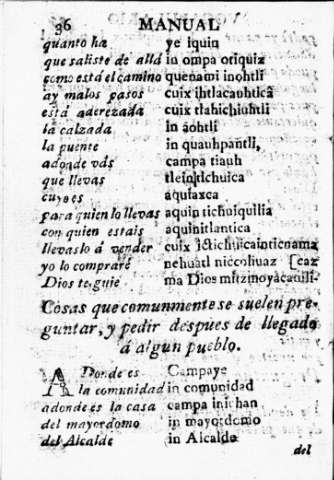 36 MANUAL
quanto ha ye iquin
que saliste de allá in ompa otiquiz
como está el camino quenami inohtli
ay malos pasos cuix ihtlacauhticā
está aderezada cuix tlahichiuhtli
la calzada in aohtli
la puente in quauhpantli,
adonde vás campa tiauh
que llevas tleintichuica
cuyo es aquiaxca
para quien lo llevas aquin tichuiquilia
con quien estais aquinitlantica
llevaslo á vender cuix tichuicatoticnama
yo lo compraré nehuatl niccohuaz [caz
Dios te guie ma Dios mitzmoyacanili
Cosas que comunmente se suelen pre-
guntar, y pedir despues de llegado
á algun pueblo.
ADonde es Campaye
la comunidad in comunidad
adonde es la casa campa inichan
del mayordomo in mayordomo
del Alcalde in Alcalde
del